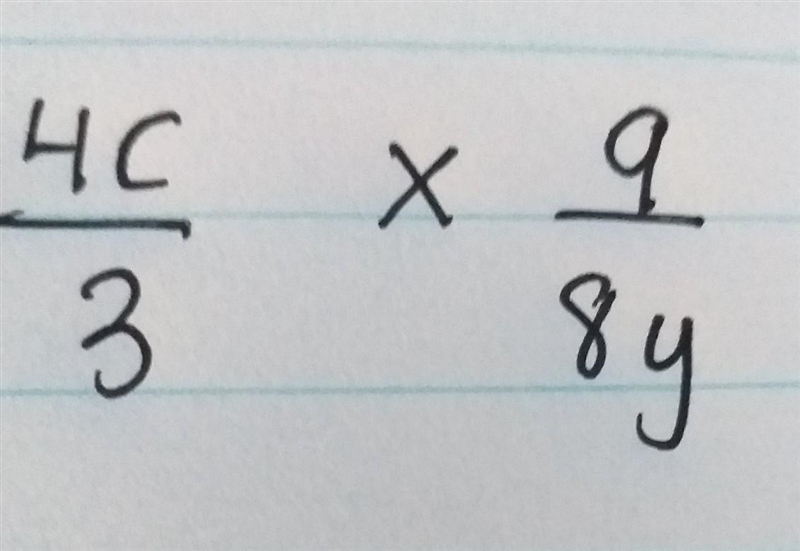 4C/3 × 9/8y